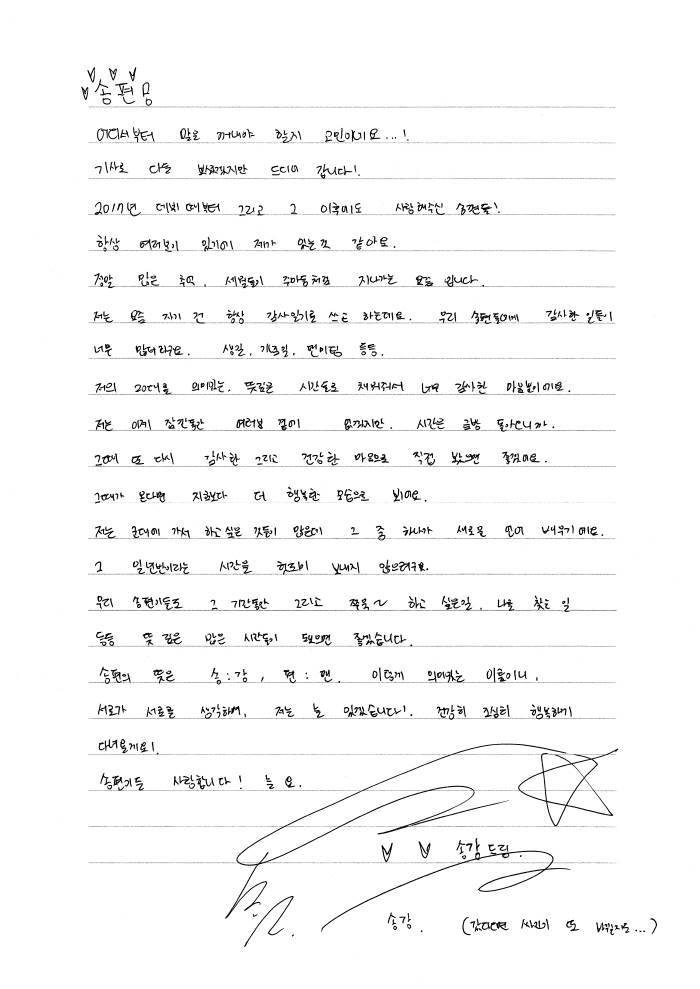 송편
어디서부터 말을 꺼내야 할지 고민이기요...!
기사로 다들 보셨겠지만 드디어 갑니다!
2017년 데뷔 때부터 그리고 그 이후에도 사랑해주신 송편들!
항상 여러분이 있기에 제가 있는 것 같아요.
정말 많은 추억, 세월들이 주마등처럼 지나가는 요즘 입니다.
저는 요즘 자기 전 항상 감사일기를 쓰곤 하는데요. 우리 송편들에게 감사한 일들이
너무 많더라구요. 생일, 기념일, 팬미팅 등등.
저의 20대를 의미있는, 뜻깊은 시간들로 채워줘서 너무 감사한 마음뿐이에요.
저는 이제 잠깐동안 여러분 곁에 없겠지만, 시간은 금방 돌아오니까.
그때 또 다시 감사한 그리고 건강한 마음으로 직접 봤으면 좋겠어요.
그때가 온다면 지금보다 더 행복한 모습으로 봐요.
저는 군대에 가서 하고싶은 것들이 많은데 그 중 하나가 새로운 언어 배우기예요.
그 일년반이라는 시간을 헛되이 보내지 않으려구요.
우리 송편이들도 그 기간동안 그리고 쭈욱~ 하고 싶은일, 나를 찾는 일
등등 뜻 깊은 많은 시간들이 됐으면 좋겠습니다.
송편의 뜻은 송:강, 편:팬. 이렇게 의미있는 이름이니,
서로가 서로를 생각하며, 저는 늘 있겠습니다!. 건강히 조심히 행복하게
다녀올게요!
송편이들 사랑합니다! 늘요.
송강 드림.
송강. (갔다오면 싸인이 또 바뀔지도...)